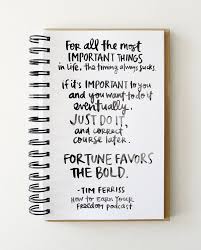 FOR all the most
IMPORTANT THINGS
in Life, the timing always sucks.
If it's IMPORTANT to you
and you want to do it
eventually,
JUST DO IT,
and correct
course later.
FORTUNE FAVORS
THE BOLD.
-TIM FERRISS
HOW to EARN YOUR
FREEDOM podcast